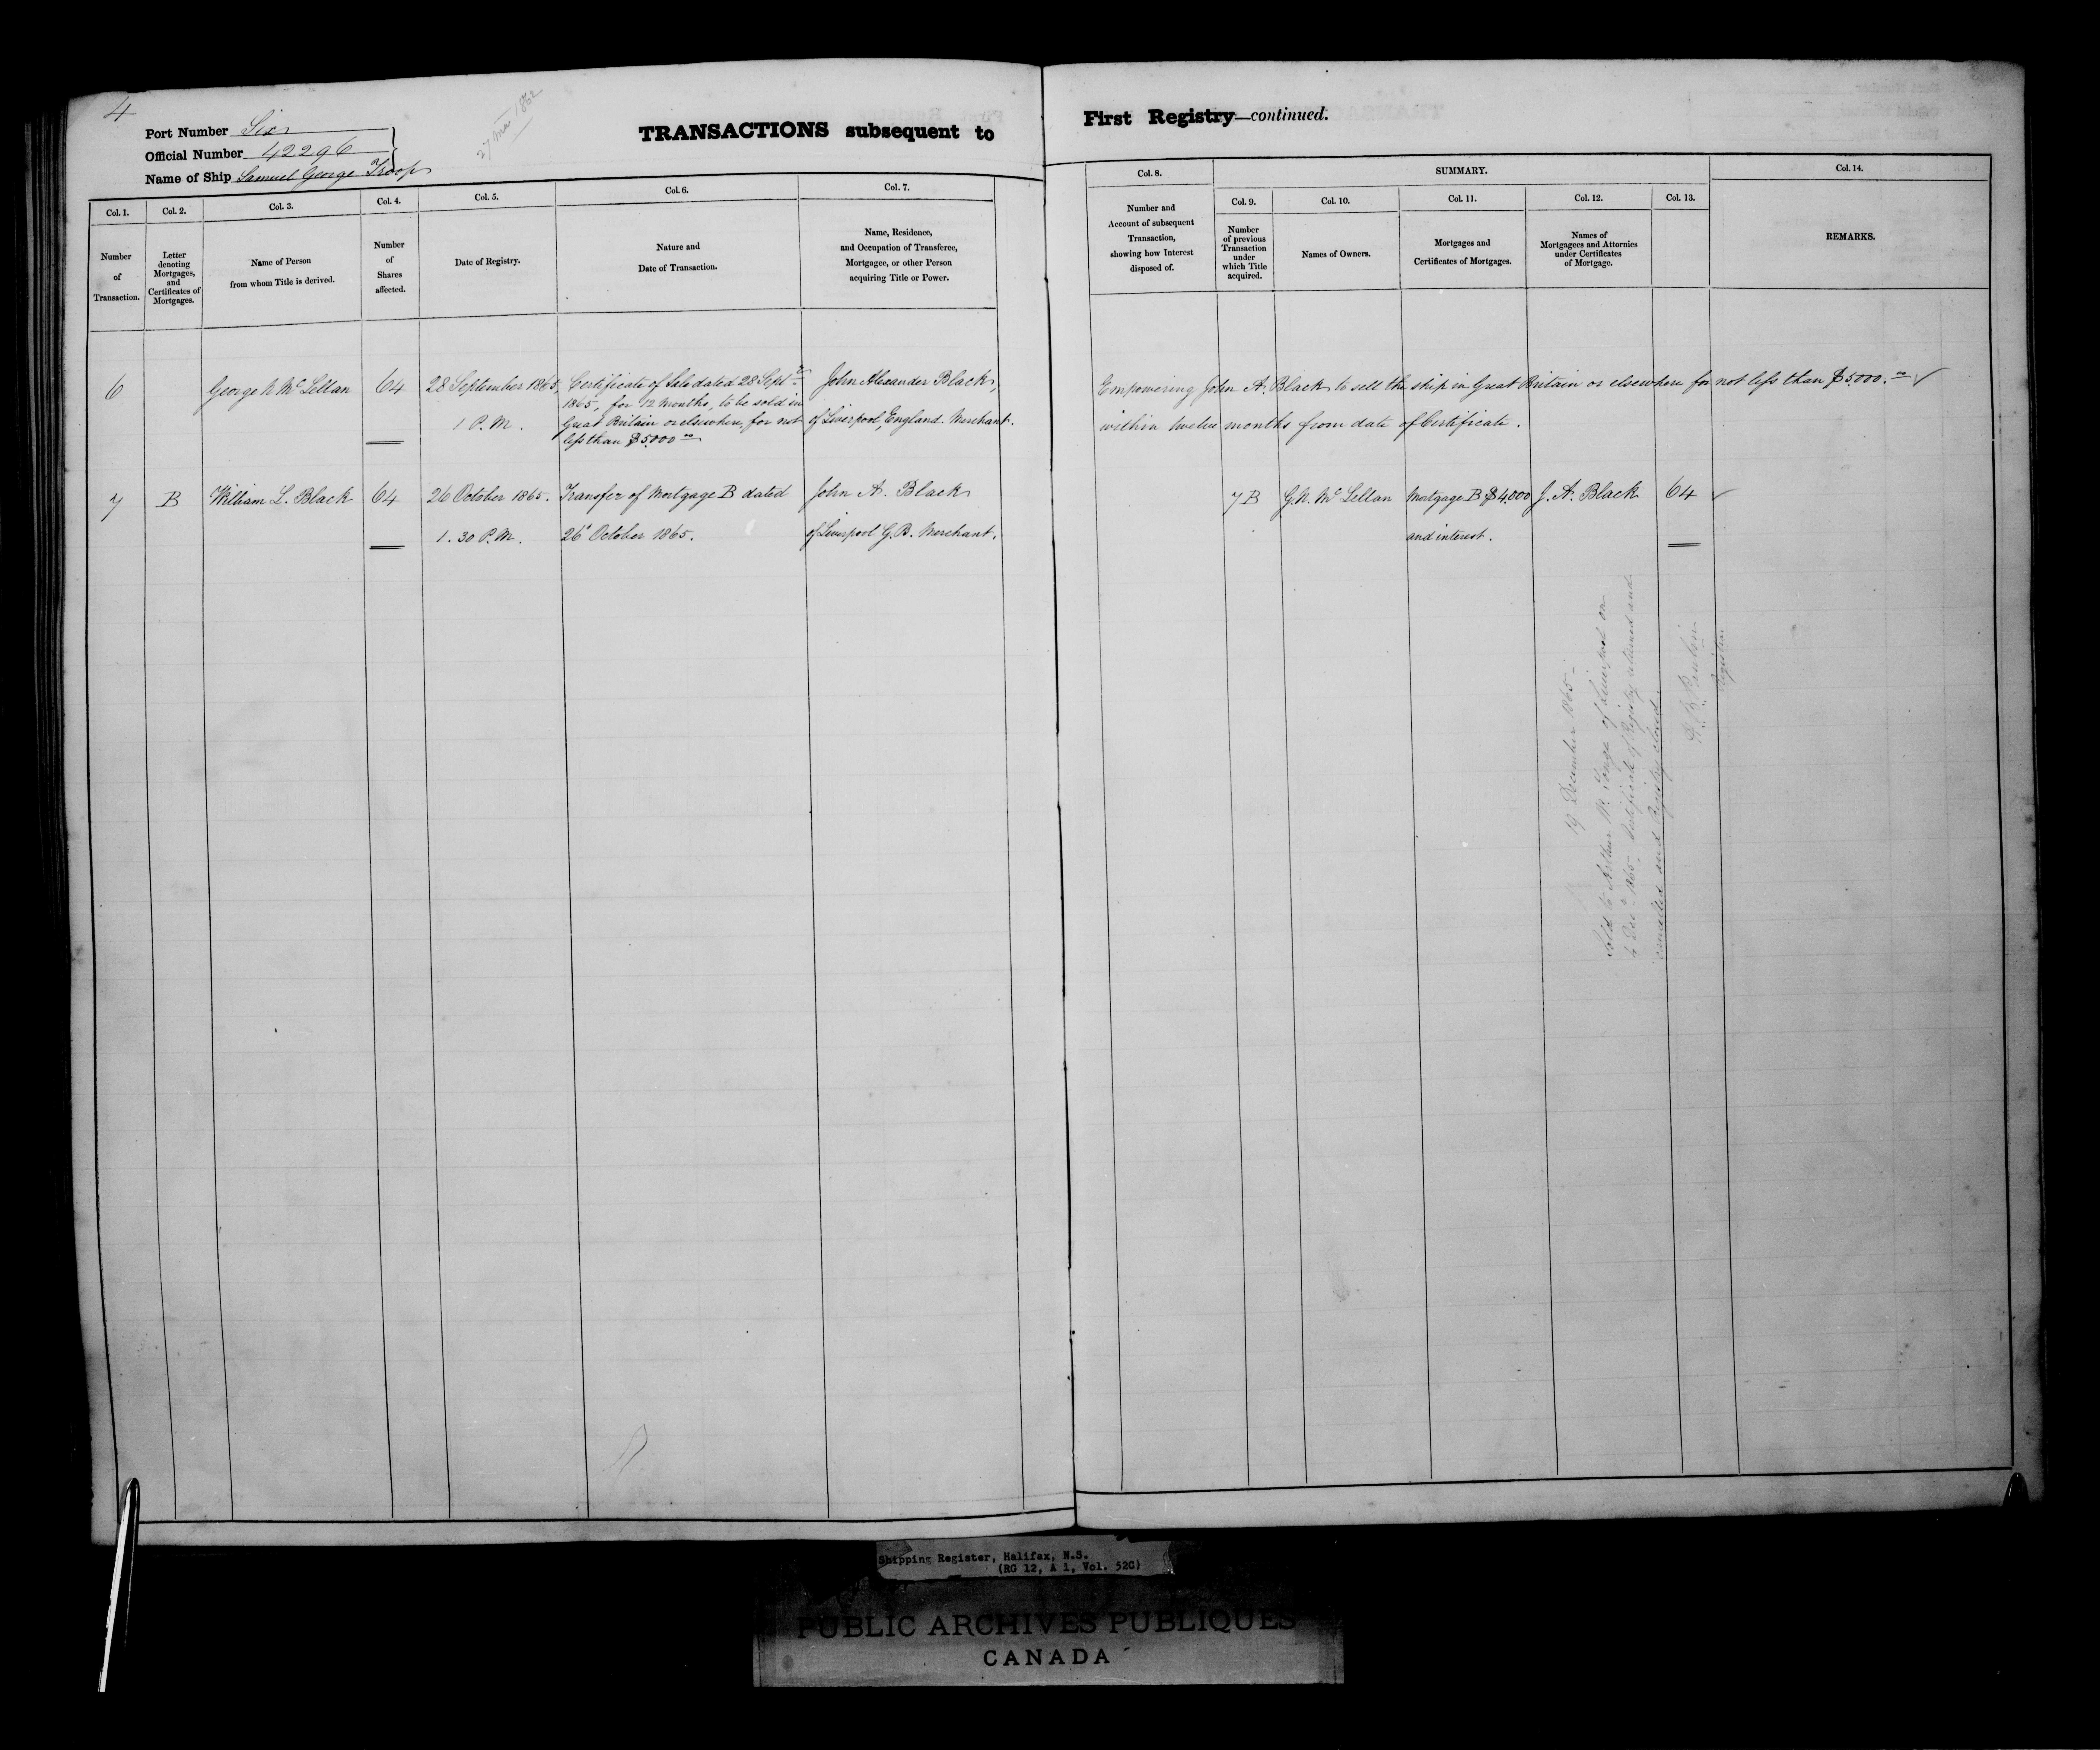 4
27 Mar 1862
Port Number Six
Official Number 42296
Name of Ship Samuel George Troop
TRANSACTIONS subsequent to
Col. 1.
Number
of
Transaction.
Col. 2.
Letter
denoting
Mortgages,
and
Certificates of
Mortgages.
Col. 3.
Name of Person
from whom Title is derived.
Col. 4.
Number
of
Shares
affected.
Col. 5.
Date of Registry.
Col. 6.
Nature and
Date of Transaction.
Col. 7.
Name, Residence,
and Occupation of Transferee,
Mortgagee, or other Person
acquiring Title or Power.
6
George N McLellan
64
28 September 1865,
1 P.M.
Certificate of Sale dated 28 Septr
1865, for 12 Months, to be sold in
Great Britain or elsewhere, for not
less than $5000.00
John Alexander Black,
of Liverpool, England. Merchant.
7
B
William L. Black
64
26 October 1865.
1.30 P.M.
Transfer of Mortgage B dated
26 October 1865.
John A. Black
of Liverpool G.B. Merchant.
First Registry—continued.
Col. 8.
Number and
Account of subsequent
Transaction,
showing how Interest
disposed of.
SUMMARY.
Col. 9.
Number
of previous
Transaction
under
which Title
acquired.
Col. 10.
Names of Owners.
Col. 11.
Mortgages and
Certificates of Mortgages.
Col. 12.
Names of
Mortgagees and Attornies
under Certificates
of Mortgage.
Col. 13.
Col. 14.
REMARKS.
Empowering John A. Black to sell the ship in Great Britain or elsewhere for not less than $5000.00
within twelve months from date of Certificate.
7 B
G. N. McLellan
Mortgage B $4,000
and interest.
J. A. Black
64
19 December 1865
Sold to Arthur W. of Liverpool on
4 Dec 1865. Certificate of Registry returned and
cancelled and Registry closed.
Registrar
Shipping Register, Halifax, N.S.
(RG 12, A 1, Vol. 52C)
PUBLIC ARCHIVES PUBLIQUES
CANADA